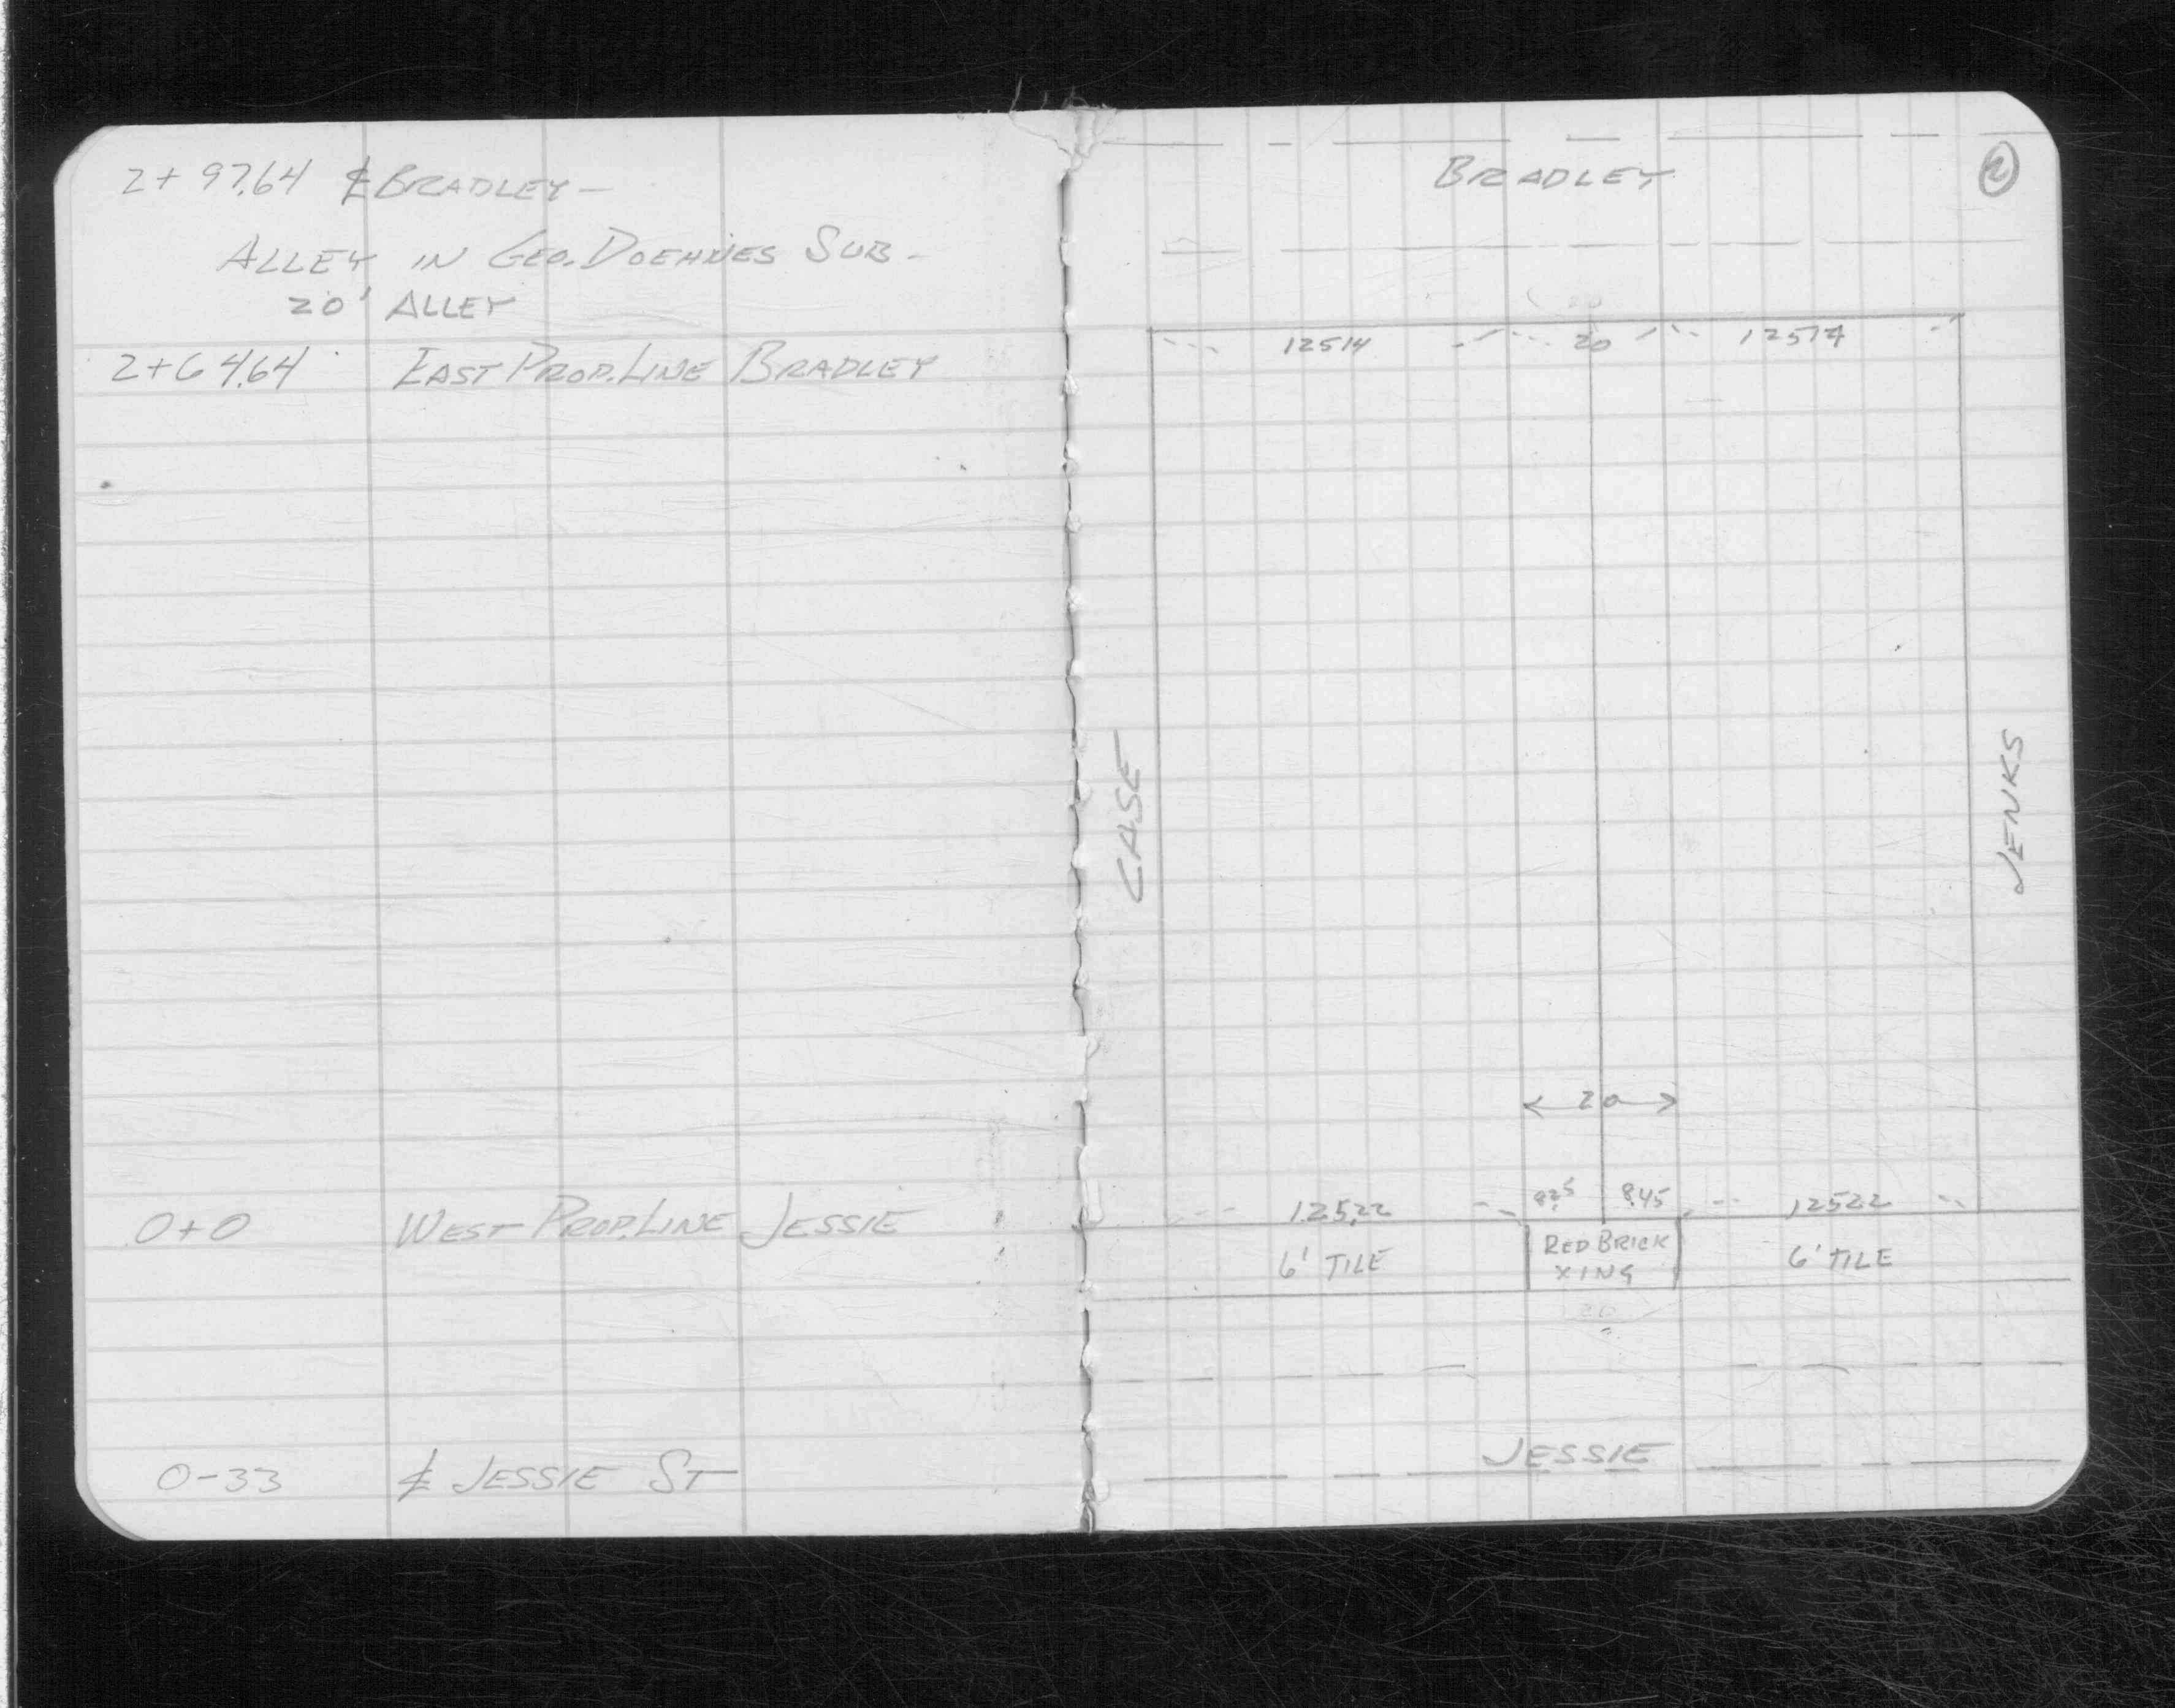 2+97.64 ℄ BRADLEY-
ALLEY IN GEO. DOEHNES SUB-
20' ALLEY
2+64.64 EAST PROP. LINE BRADLEY
0+0 WEST PROP. LINE JESSIE
0-33 ℄ JESSIE ST
BRADLEY
2
12514 20 12514
CASE
JENKS
20
8.25 8.45
125.22 12522
6' TILE RED BRICK 6' TILE
XING
20
JESSIE